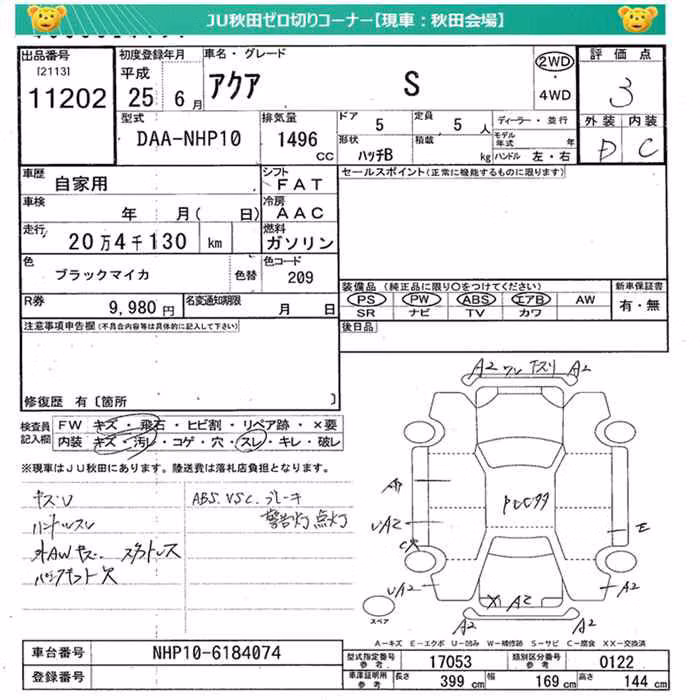 JU秋田ゼロ切りコーナー【現車：秋田会場】
出品番号 初度登録年月 車名・グレード 評価点
[2113]
11202 平成 25 6月 アクア S 2WD ・ 4WD 3
型式 排気量 ドア 定員 ディーラー・並行 外装 内装
DAA-NHP10 1496 CC 5 5 人 モデル年式 年 D C
形状 積載
ハッチB kg ハンドル 左・右
車歴 シフト セールスポイント(正常に機能するものに限ります)
自家用 FAT
車検 冷房
年 月( 日) AAC
走行 燃料
20万4千130 km ガソリン
色 色コード
ブラックマイカ 色替 209
装備品(純正品に限り○をつけてください) 新車保証書
R券 名変通知期限 PS PW ABS エアB AW 有・無
9,980円 月 日 SR ナビ TV カワ
注意事項申告欄(不具合内容等は具体的に記入して下さい) 後日品
修復歴 有〔箇所 〕
検査員記入欄 FW キズ・飛石・ヒビ割・リペア跡・×要
内装 キズ・汚レ・コゲ・穴・スレ・キレ・破レ
※現車はJU秋田にあります。陸送費は落札店負担となります。
ハンドルスレ
ABS. VSC. ブレーキ
警告灯 点灯
A2 A2
UA2
E
UA2 X A2 A2
A2 A2
スペア
A－キズ E－エクボ U－凹み W－補修跡 S－サビ C－腐食 XX－交換済
車台番号 NHP10-6184074
型式指定番号 参考 17053 類別区分番号 参考 0122
登録番号
車庫証明用 参考 長さ 399 cm 幅 169 cm 高さ 144 cm